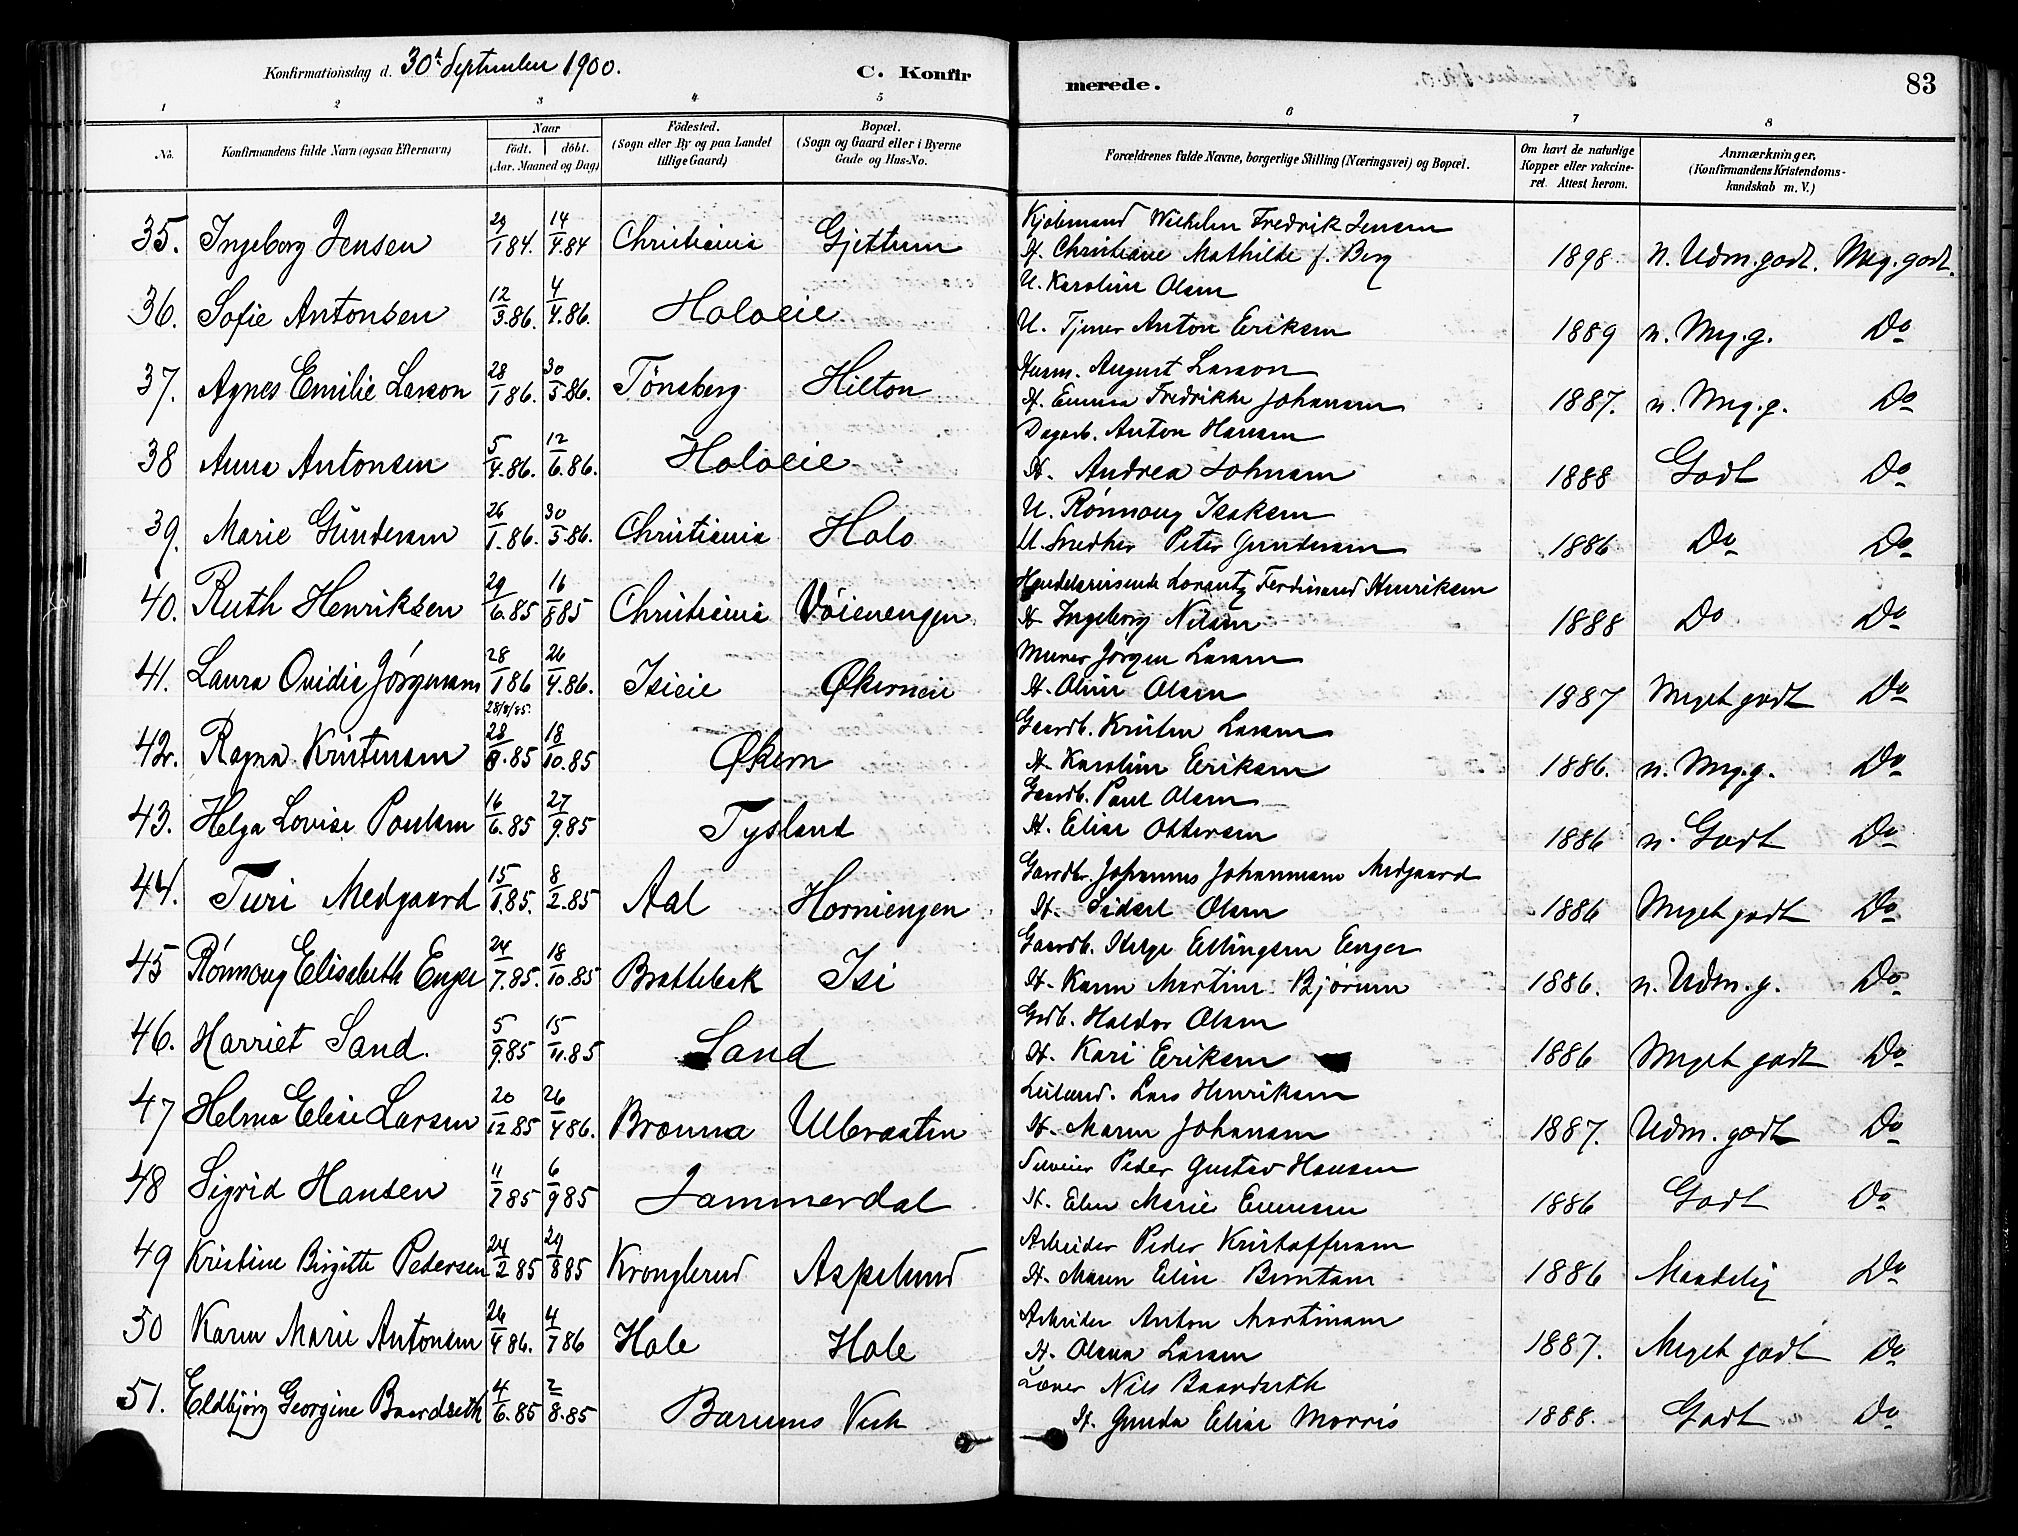 Konfirmationsdag d. 30t September 1900. C. Konfir
merede. 83
1 2 3 4 5
6 7 8
No. Konfirmandens fulde Navn (ogsaa Efternavn) Naar födt. döbt. (Aar. Maaned og Dag) Födested. (Sogn eller By og paa Landet tillige Gaard) Bopæl. (Sogn og Gaard eller i Byerne Gade og Hus-No.
Forældrenes fulde Navne, borgerlige Stilling (Næringsvei) og Bopæl. Om havt de naturlige Kopper eller vakcineret. Attest herom. Anmærkninger. (Konfirmandens Kristendomskundskab m. V.)
35. Ingeborg Jensen 29/1 84. 14/4.84 Christiania Gjettum
Wilhelm Fredrik Jensen
H. Christiane Mathilde f. Berg 1898 n. Udm. godt. Meg. godt.
36. Sofie Antonsen 12/3.86. 4/4.86. Holoeie
U. Karoline Olsen
U. Tjener Anton Eriksen 1889 n. Meg. g. Do
37. Agnes Emilie Larson 28/1 86. 30/5.86. Tönsberg Hilton
Husm. August Larson
H. Emma Fredrikke Johansen 1887. n. Meg. g. Do
38 Anna Antonsen 5/4.86. 12/6.86. Holoeie
Dagarb. Anton Hansen
H. Andrea Johnsen 1888 Godt Do
39. Marie Gundersen 26/1.86. 30/5.86. Christiania Holo
U. Rönnaug Isaksen
U. Snedker Peter Gundersen 1886 Do Do
40. Ruth Henriksen 29/6.85 16/8 85 Christiania Vöienengen
Handelsreisende Lorentz Ferdinand Henriksen
H. Ingeborg Nilsen 1888 Do Do
41. Laura Ovidia Jörgensen 28/1 86 26/4.86. Isieie Økerneie
Murer Jörgen Larsen
H. Oline Olsen 1887 Meget godt Do
28/8/85.
42. Ragna Kristensen 28/8.85 18/10.85 Økern
Gaardb. Kristen Larsen
H. Karoline Eriksen 1886. n. Meg. g. Do
43. Helga Lovise Poulsen 16/6.85 27/9.85 Tysland
Gaardb. Paul Olsen
H. Elise Ottersen 1886 n. Godt Do
44. Turi Medgaard 15/1.85. 8/2.85 Aal Horniengen
Gaardbr. Johannes Johannesen Medgaard
H. Sidsel Olsen 1886 Meget godt Do
45 Rönnaug Elisabeth Enger 24/7.85. 18/10.85 Brattebæk Isi
Gaardb. Helge Ellingsen Enger
H. Karen Martine Bjørum 1886. n. Udm. g. Do
46. Harriet Sand. 5/9.85 15/11.85 Sand
Grdb. Haldor Olsen
H. Kari Eriksen 1886 Meget godt Do
47 Helma Elise Larsen 20/12 85 26/4 86. Brænna Ulvraaten
Leiland. Lars Henriksen
H. Maren Johansen 1887. Udm. godt Do
48 Sigrid Hansen 11/7 85 6/9 85 Jammerdal
Peder Gustav Hansen
H. Elen Marie 1886 Godt Do
49 Kristine Birgitte Pedersen 24/2 85 29/8 85 Kronglerud Aspelund
Arbeider Peder Kristoffersen
H. Maren Eline Berntsen 1886 Maadelig Do
50 Karen Marie Antonsen 26/4 86. 4/7 86 Hole Hole
Arbeider Anton Martinsen
H. Olava Larsen 1887. Meget godt Do
51. Eldbjörg Georgine Baardseth 4/6.85 2/8.85 Bærums Verk
Lærer Nils Baardseth
H. Gunda Elise Morris 1888. Godt Do